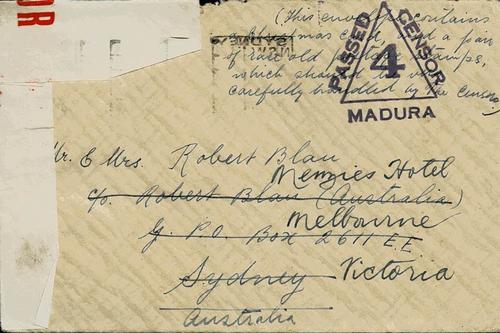 OR
(This envelope contains
a Christmas card, and a pair
of rare old postage stamps,
which should be very
carefully handled by the Censor)
PASSED CENSOR
4
MADURA
SYDNEY
Mr. & Mrs. Robert Blau
Menzies Hotel
c/o Robert Blau (Australia)
Melbourne
G. P.O. Box 2611 E.E
Sydney Victoria
Australia